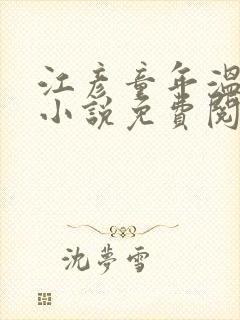 江彥童年溫
小說免費閱
沈夢雪